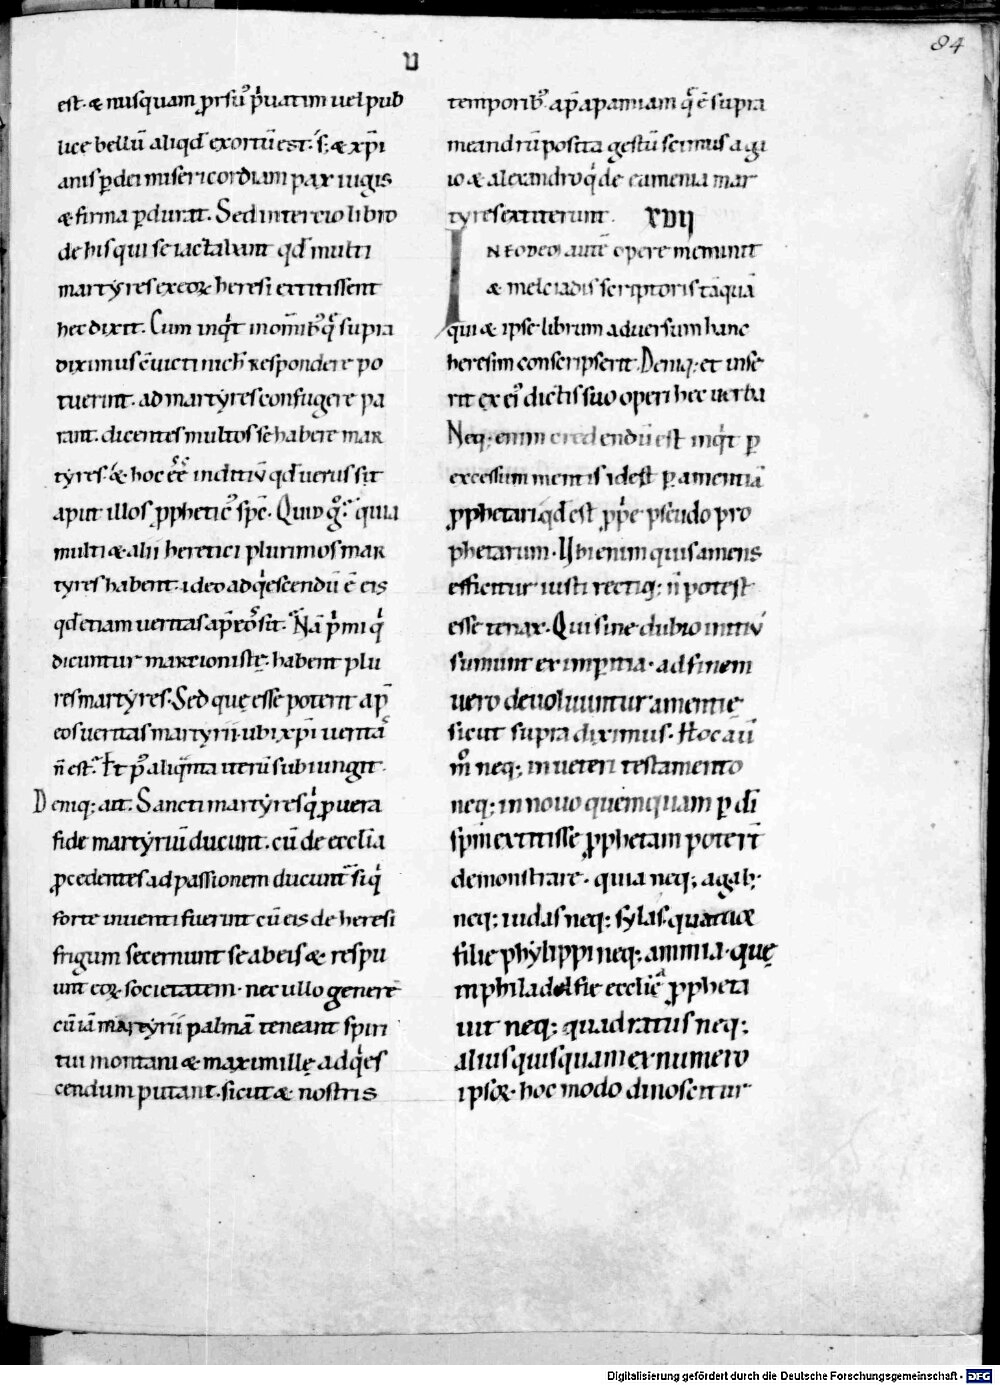 84
U
est. & nusquam ꝓrsu᷒ p͛uatim uel pub
lice bellū aliqd̄ exortū est. s; & xp̄i
anis ꝑ dei misericordiam pax iugis
& firma ꝑdurat. Sed in tercio libro
de his qui se iactabant qd̄ multi
martyres ex eoꝝ heresi extitissent
hec dixit. Cum inqͥt in om̄ibꝰ q̄ supra
diximus c̄uicti nich̄ respondere po
tuerint. ad martyres confugere pa
rant. dicentes multos se habere mar
tyres. & hoc ēē inditiū qd̄ uerus sit
aput illos ꝓphetic᷒ sp̄c. Quid gͦ. quia
multi & alii heretici plurimos mar
tyres habent. ideo adqͥescendū ē eis
qd̄ etiam ueritas ap̄ eos sit. Nā pͥmi qͥ
dicuntur marcionistę. habent plu
res martyres. Sed quę esse poterit ap̄
eos ueritas martyrii. ubi xp̄i uerita᷒
n̄ est. Et pꝰ aliqͣnta iterū subiungit.
Deniq; ait. Sancti martyres qͥ ꝓ uera
fide martyriū ducunt. cū de ecclīa
ꝓcedentes ad passionem ducunt͛ siqͥ
forte inuenti fuerint cū eis de heresi
frigum secernunt se ab eis & respu
unt eoꝝ societatem. nec ullo genere
cū iā martyrii palmā teneant spiri
tui montani & maximillę adqͥes
cendum putant. sicut & nostris
temporibꝰ ap̄ apamiam q̄ ē supra
meandrū posita gestū scimus a gi
io & alexandro qͥ de eamenia mar
tyres extiterunt. XVII
IN EODEM autē opere meminit
& melciadis scriptoris tāquā
qui & ipse librum aduersum hanc
heresim conscripserit. Deniq; et inse
rit ex eiꝰ dictis suo operi hec uerba
Neq; enim credendū est inqͥt ꝑ
excessum mentis id est ꝑ amentiā
ꝓphetari. qd̄ est ꝓpͥe pseudo pro
phetarum. Ubi enim quis amens
efficitur iusti rectiq; n̄ potest
esse tenax. Qui sine dubio initiū
sumunt ex imꝑitia. ad finem
uero deuoluuntur amentię
sicut supra diximus. Hoc aū
mͦ neq; in ueteri testamento
neq; in nouo quemquam ꝑ dī
sp̄m extitisse ꝓphetam poterit
demonstrare. quia neq; agab;
neq; iudas neq; sylas. quattuor
filie phylippi neq; ammia. quę
in philadelfię ecclīa ꝓpheta
uit neq; quadratus neq;
alius quisquam ex numero
ipsoꝝ. hoc modo dinoscitur
Digitalisierung gefördert durch die Deutsche Forschungsgemeinschaft - DFG